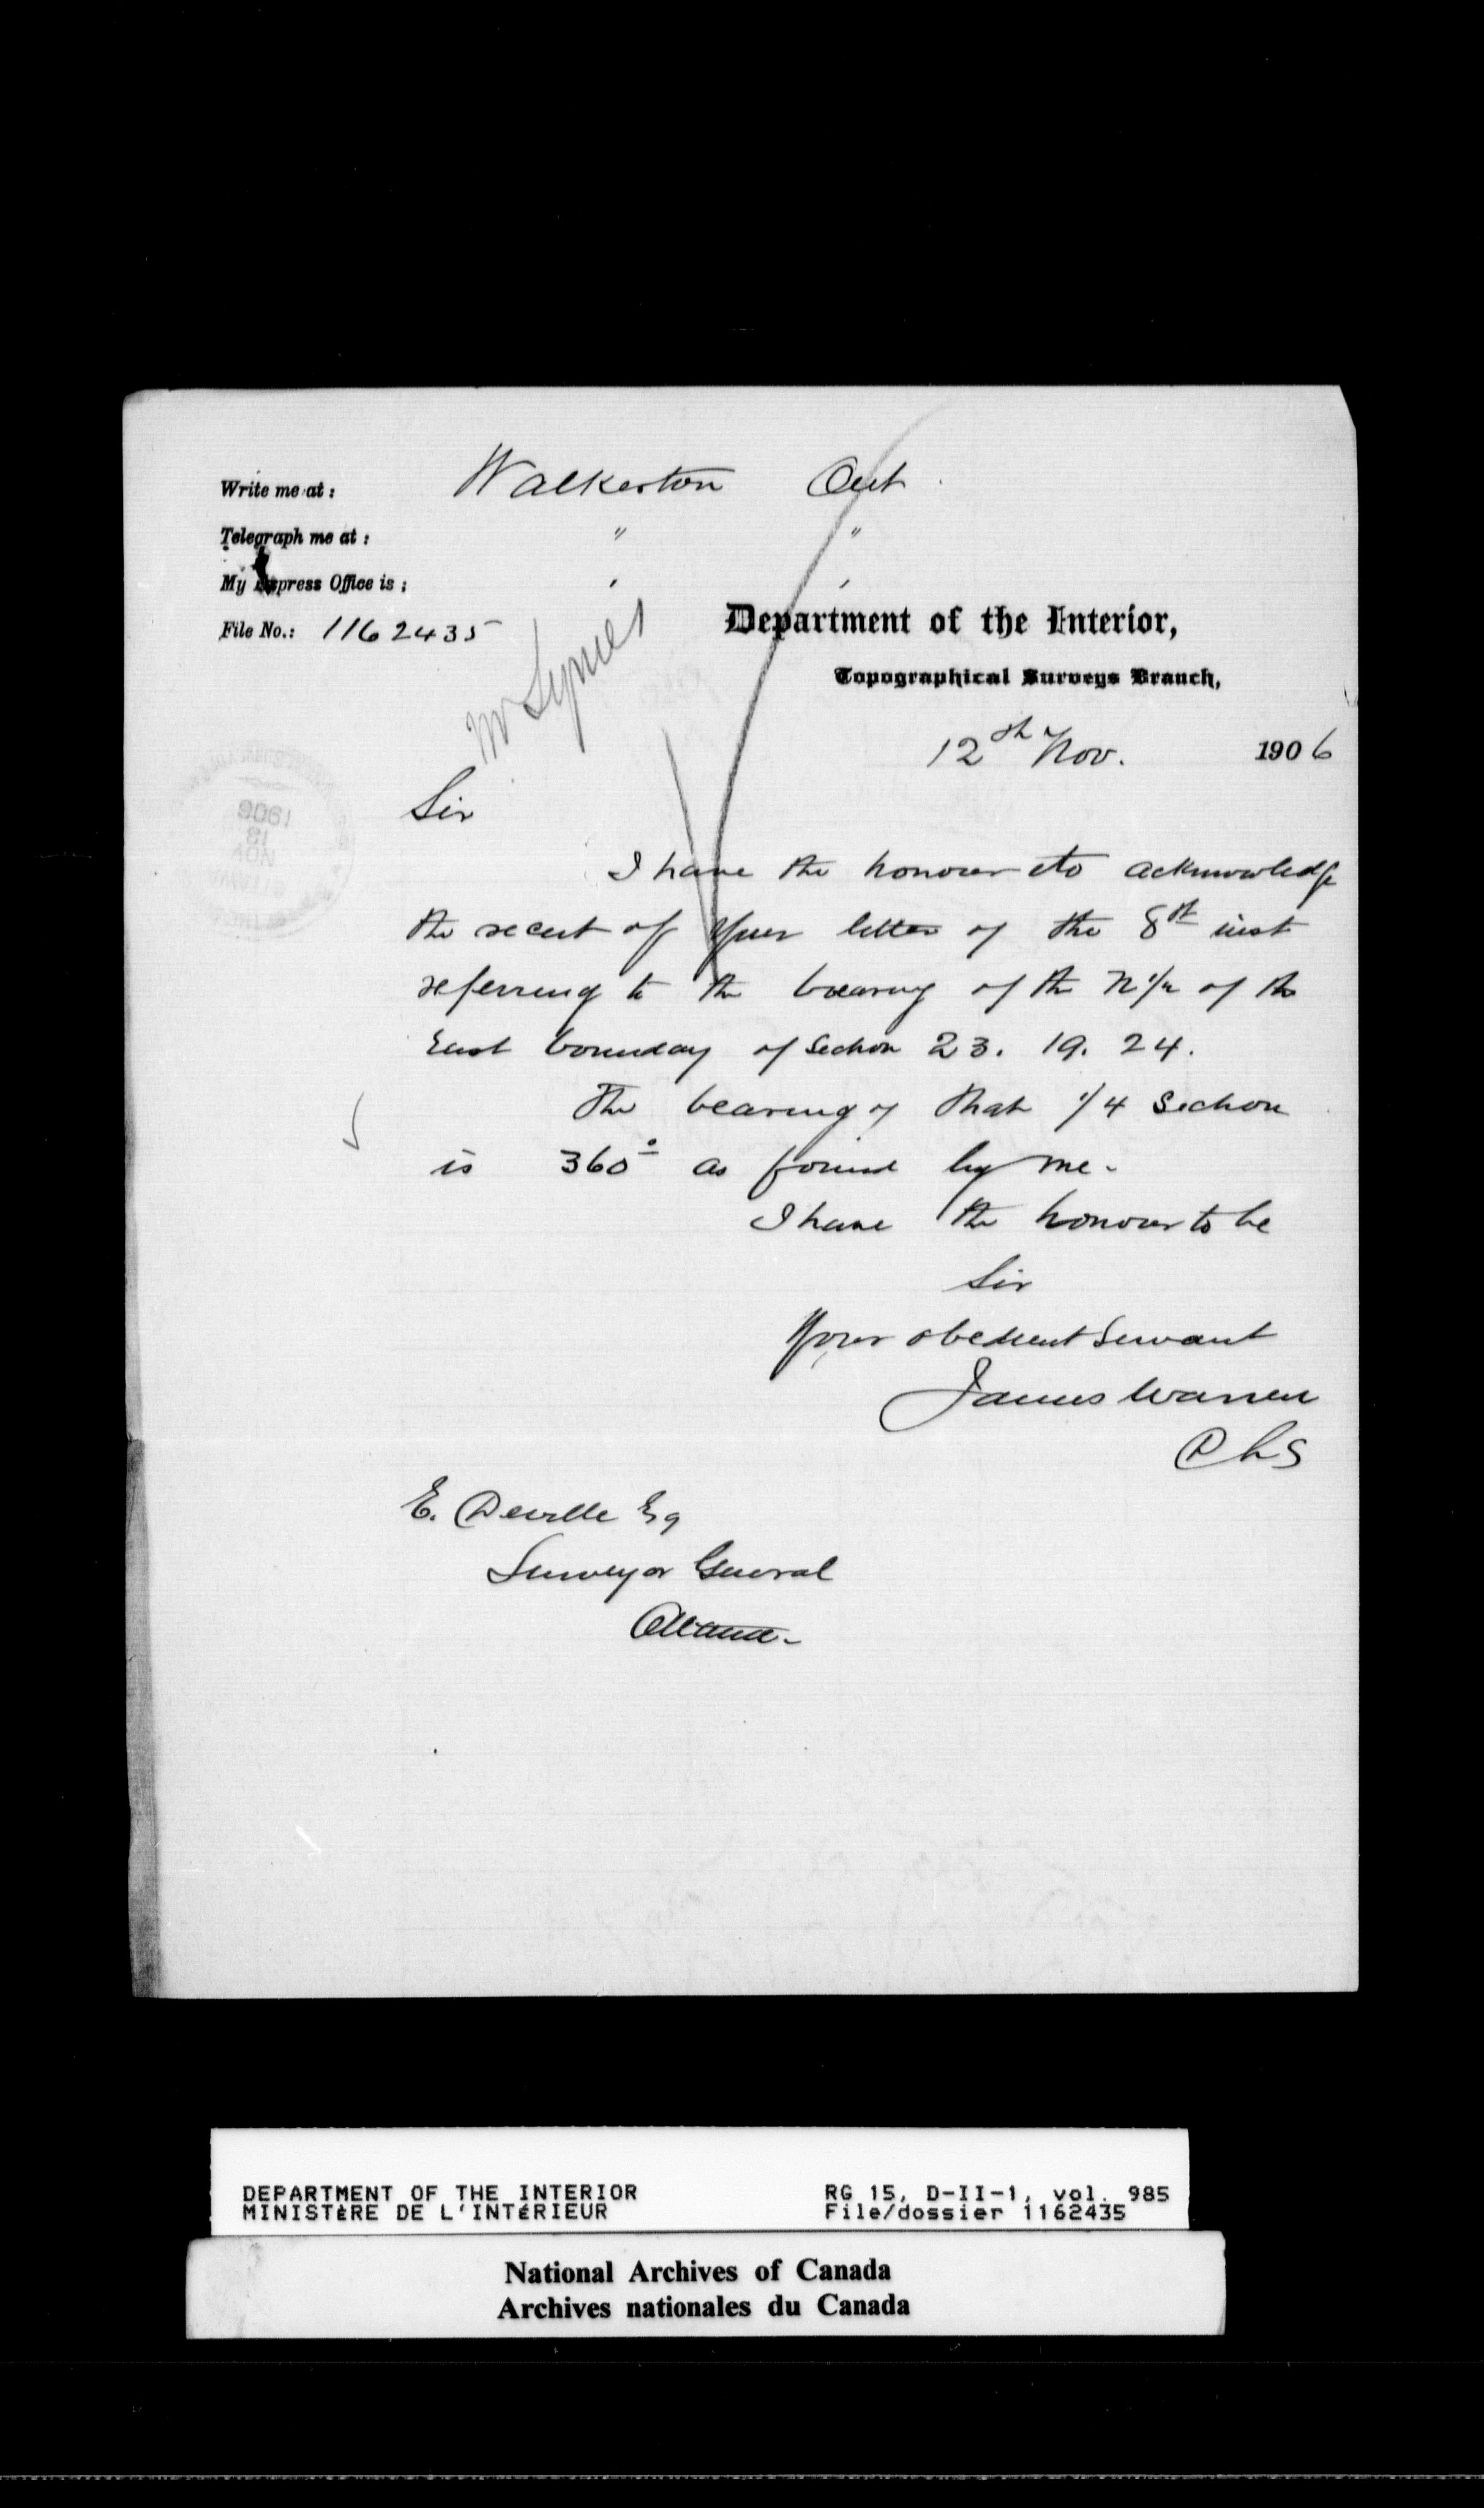 Write me at: Walkerton Ont.
Telegraph me at: " "
My Express Office is: " "
File No.: 1162435
Mr Symes
Department of the Interior,
Topographical Surveys Branch,
12th Nov. 1906
Sir
I have the honour to acknowledge
the receit of your letter of the 8th inst
referring to the bearing of the N ½ of the
East boundary of Section 23. 19. 24.
The bearing of that 1/4 Section
is 360° as found by me.
I have the honour to be
Sir
Your obedient Servant
James Warren
DLS
E. Deville Esq
Surveyor General
Ottawa.
1906
13
NOV
DEPARTMENT OF THE INTERIOR RG 15, D-II-1, vol. 985
MINISTÈRE DE L'INTÉRIEUR File/dossier 1162435
National Archives of Canada
Archives nationales du Canada